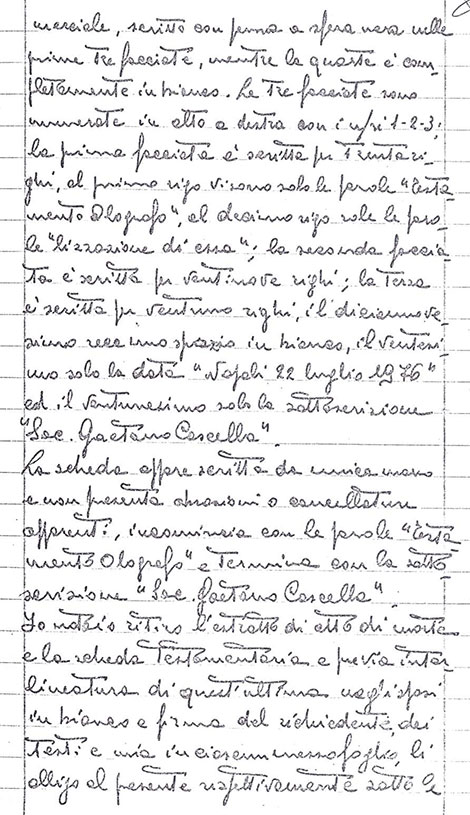 merciale, scritto con penna a sfera nera nelle
prime tre facciate, mentre la quarta è com=
pletamente in bianco. Le tre facciate sono
numerate in alto a destra con i n/ri 1-2-3;
la prima facciata è scritta per trenta ri-
ghi, al primo rigo vi sono solo le parole "Testa
mento Olografo", al decimo rigo solo le paro-
le "lizzazione di essa"; la seconda faccia-
ta è scritta per ventinove righi; la terza
è scritta per ventuno righi, il diciannove-
simo reca uno spazio in bianco, il ventesi-
mo solo la data "Napoli 22 luglio 1976"
ed il ventunesimo solo la sottoscrizione
"Sac. Gaetano Cascella".
La scheda appare scritta da unica mano
e non presenta abrasioni o cancellature
apparenti, incomincia con le parole "Testa
mento Olografo" e termina con la sotto-
scrizione "Sac. Gaetano Cascella".
Io notaio ritiro l'estratto di atto di morte
e la scheda testamentaria e previa inter
lineatura di quest'ultima negli spazi
in bianco e firma del richiedente, dei
testi e mia in ciascun mezzo foglio, li
alligo al presente rispettivamente sotto le